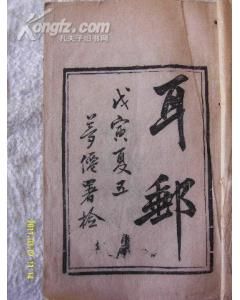 孔夫子旧书网
耳郵
戊寅夏五
夢僊署檢